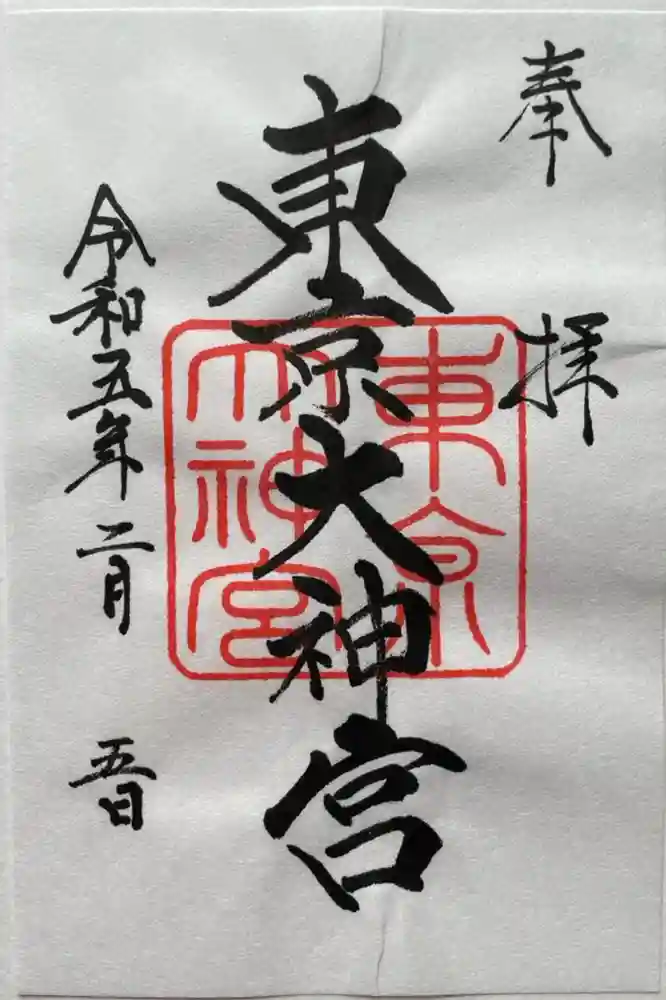 奉拝
東京大神宮
東京大神宮
令和五年二月五日